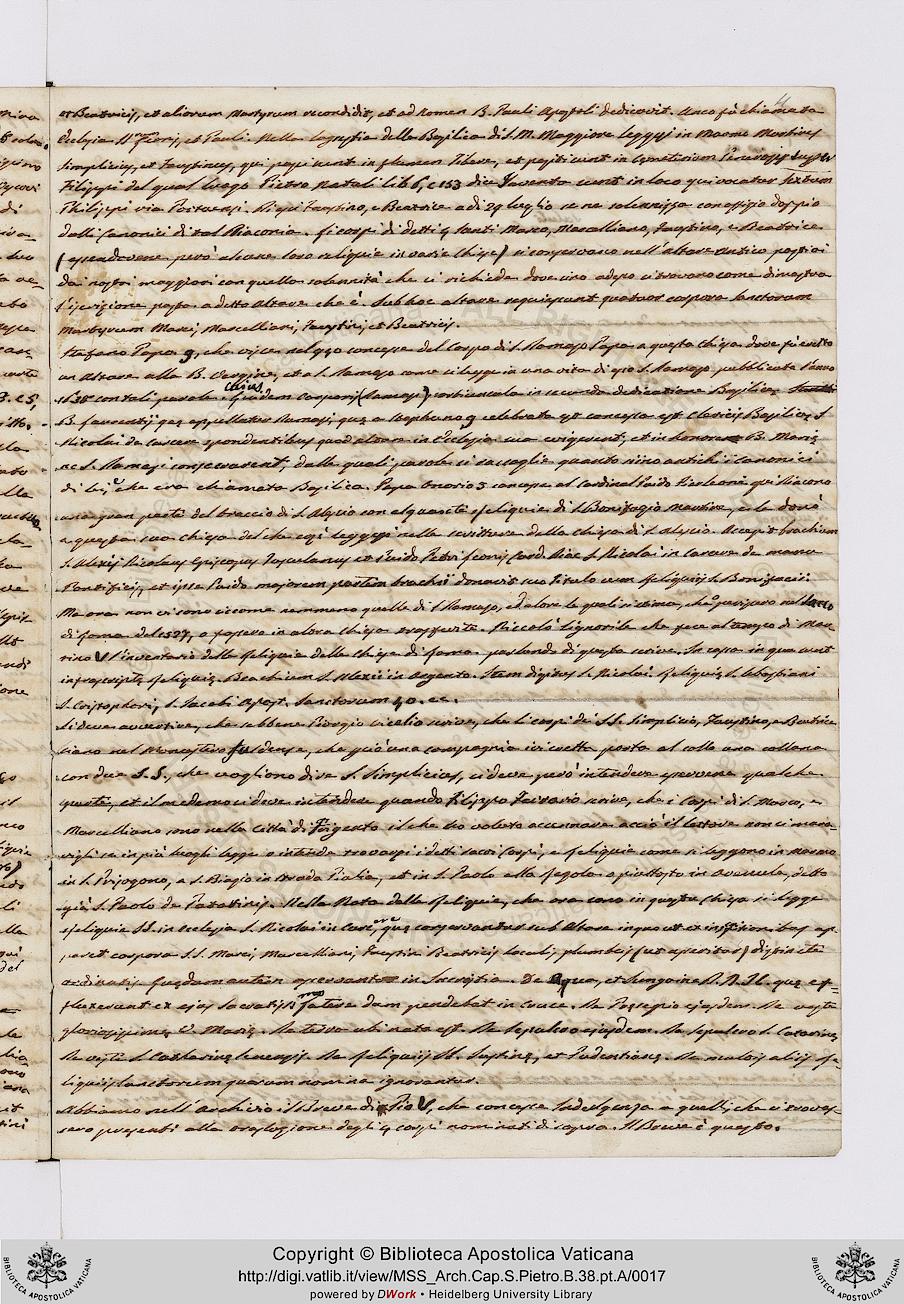 et Beatricis, et aliorum Martyrum recondidit, et ad nomen B. Pauli Apostoli dedicavit. Anco fù chiamata
Ecclesia et Pauli. Nella Sagrestia della Basilica di S. M. Maggiore leggesi in Marmo Martires
Simplicius, et Faustinus, qui passi sunt in flumen Tibere, et positi sunt in Cymeterium Generosses super
Filippi del qual luogo Pietro Natali lib 6, c 153 dice Inventa sunt in loco qui vocatur Sextum
Philippi via Portuensi. Di qui Faustino, e Beatrice a di 29 luglio se ne solennizza con offizio doppio
dalli Canonici di tal Diaconia. Li corpi di detti 4 Santi Marco, Marcelliano, Faustino, e Beatrice
(essendovene però alcune loro reliquie in varie Chiese) si conservano nell'altare antico postivi
da nostri maggiori con quella solennità che si richiede dove sino adesso si trovano come dimostra
l'iscrizione posta a detto Altare che è. Sub hoc altare requiescunt quatuor corpora Sanctorum
Martyrum Marci, Marcelliani, Faustini, et Beatricis.
Stefano Papa 9, che visse nel 940 concesse del Corpo di S. Damaso Papa a questa Chiesa dove fù eretto
un Altare alla B. Vergine, et a S. Damaso come si legge in una vita di esso S. Damaso pubblicata l'anno
Cuius
1638 con tali parole. Ejusdem Corporis (Damasi) portiuncula in secunda dedicatione Basilicæ
B. Laurentij quæ appellatur Damasi, quæ a Stephano 9 celebrata est concessa est Clericis Basilicæ S.
Nicolai de Carcere spondentibus quod altare in Ecclesia sua erigerent, et in honorem B. Mariæ
ac S. Damasi consecrarent, dalle quali parole si raccoglie quanto sino antichi i Canonici
di lei, che era chiamata Basilica. Papa Onorio 3 concesse al Cardinal Guido Pierleone qui Diacono
una gran parte del braccio di S. Alessio con alquante Reliquie di S. Bonifazio Martire, e le donò
a questa sua Chiesa del che così leggesi nelle scritture della Chiesa di S. Alessio Accepit brachium
S. Alexii Nicolaus Episcopus Tusculanus et Guido Petri Leonis Card. Diac. S. Nicolai in Carcere de manu
Pontificis, et ipse Guido majorem partem brachii donavit suo Titulo cum Reliquiis S. Bonifacii.
Ma ora non vi sono siccome nemmeno quelle di S. Damaso, ed altre le quali si stima, che perissero nel Sacco
di Roma del 1527, o fossero in altra Chiesa trasferite. Niccolò Signorile che fece al tempo di Mar-
tino V l'inventario delle Reliquie delle Chiese di Roma parlando di questa scrive. In capsa in qua sunt
infrascriptæ Reliquiæ. Brachium S. Alexii in Argento. Item digitus S. Nicolai. Reliquiæ S. Sebastiani
S. Cristophori, S. Jacobi Apost. Sanctorum 40. ec.
Si deve avvertire, che sebbene Giorgio Vicelio scrive, che li corpi de SS. Simplicio, Faustino, e Beatrice
siano nel Monastero Fuldense, che già una compagnia ivi eretta porta al collo una collana
con due S. S., che vogliono dire S. Simplicius, si deve però intendere esservene qualche
parte, et il medemo si deve intendere quando Filippo Ferrario scrive, che i Corpi di S. Marco, e
Marcelliano sono nella Città di Tirgento il che ho voluto accennare acciò il lettore non si mara-
vigli se in più luoghi legge o intende trovarsi i detti sacri Corpi, e Reliquie come si leggono in Marmo
in S. Grisogono, a S. Biagio in strada Giulia, et in S. Paolo alla Regola o piuttosto in Arenula, detto
già S. Paolo de Patatinis. Nella Nota delle Reliquie, che ora sono in questa Chiesa si legge
Reliquiæ SS. in Ecclesia S. Nicolai in Carcere, quæ conservantur sub Altare in quo ut et inscriptionibus ap-
paret corpora S.S. Marci, Marcelliani, Faustini Beatricis loculis plumbeis (ut asseritur) distincte
ordinatis quædam autem asservantur in Sacristia. De Aqua, et Sanguine D. N. J. C. quæ ef-
fluxerunt ex ejus Sacratissimo latere dum pendebat in Cruce. De Præsepio ejusdem. De veste
gloriosissimæ V. Mariæ. De terra ubi nata est. De sepulcro ejusdem. De sepulcro S. Catarinæ
De veste S. Catharinæ Senensis. De Reliquiis SS. Justinæ, et Pudentianæ. De multis aliis Re-
liquiis Sanctorum quarum nomina ignorantur.
Abbiamo nell'Archivio il Breve di Pio V, che concesse Indulgenza a quelli, che si troves-
sero presenti alla traslazione degli 4 corpi nominati di sopra. Il Breve è questo.
Copyright © Biblioteca Apostolica Vaticana
http://digi.vatlib.it/view/MSS_Arch.Cap.S.Pietro.B.38.pt.A/0017
powered by DWork • Heidelberg University Library
BIBLIOTECA APOSTOLICA VATICANA
BIBLIOTECA APOSTOLICA VATICANA